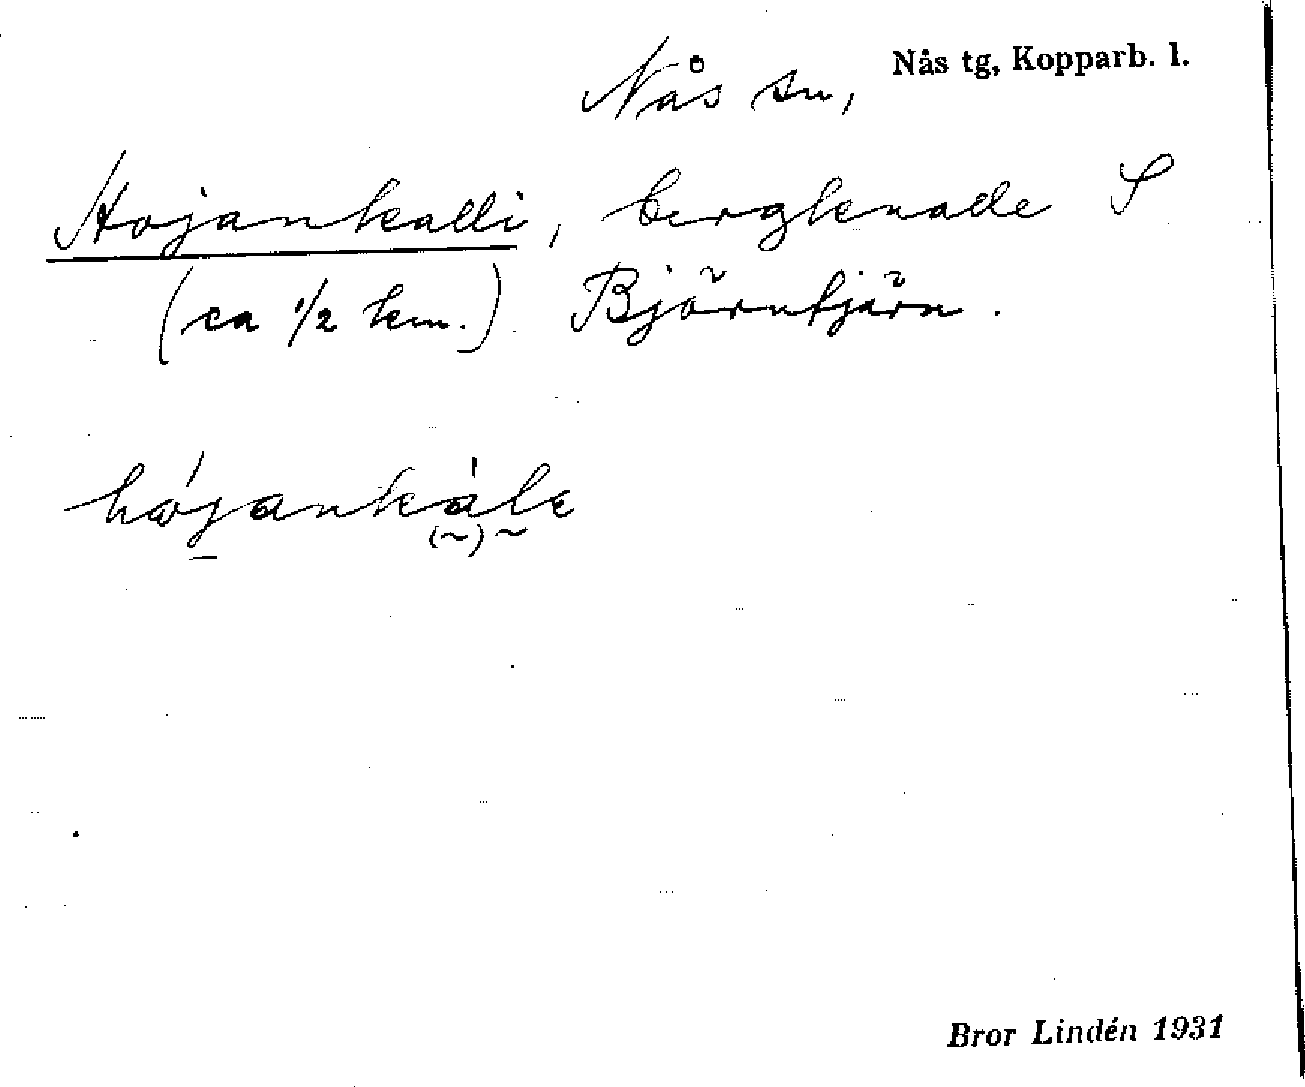 Nås tg, Kopparb. l.
Nås sn,
Hojankalli, bergknalle S
(ca 1/2 km.) Björntjärn.
Bror Lindén 1931